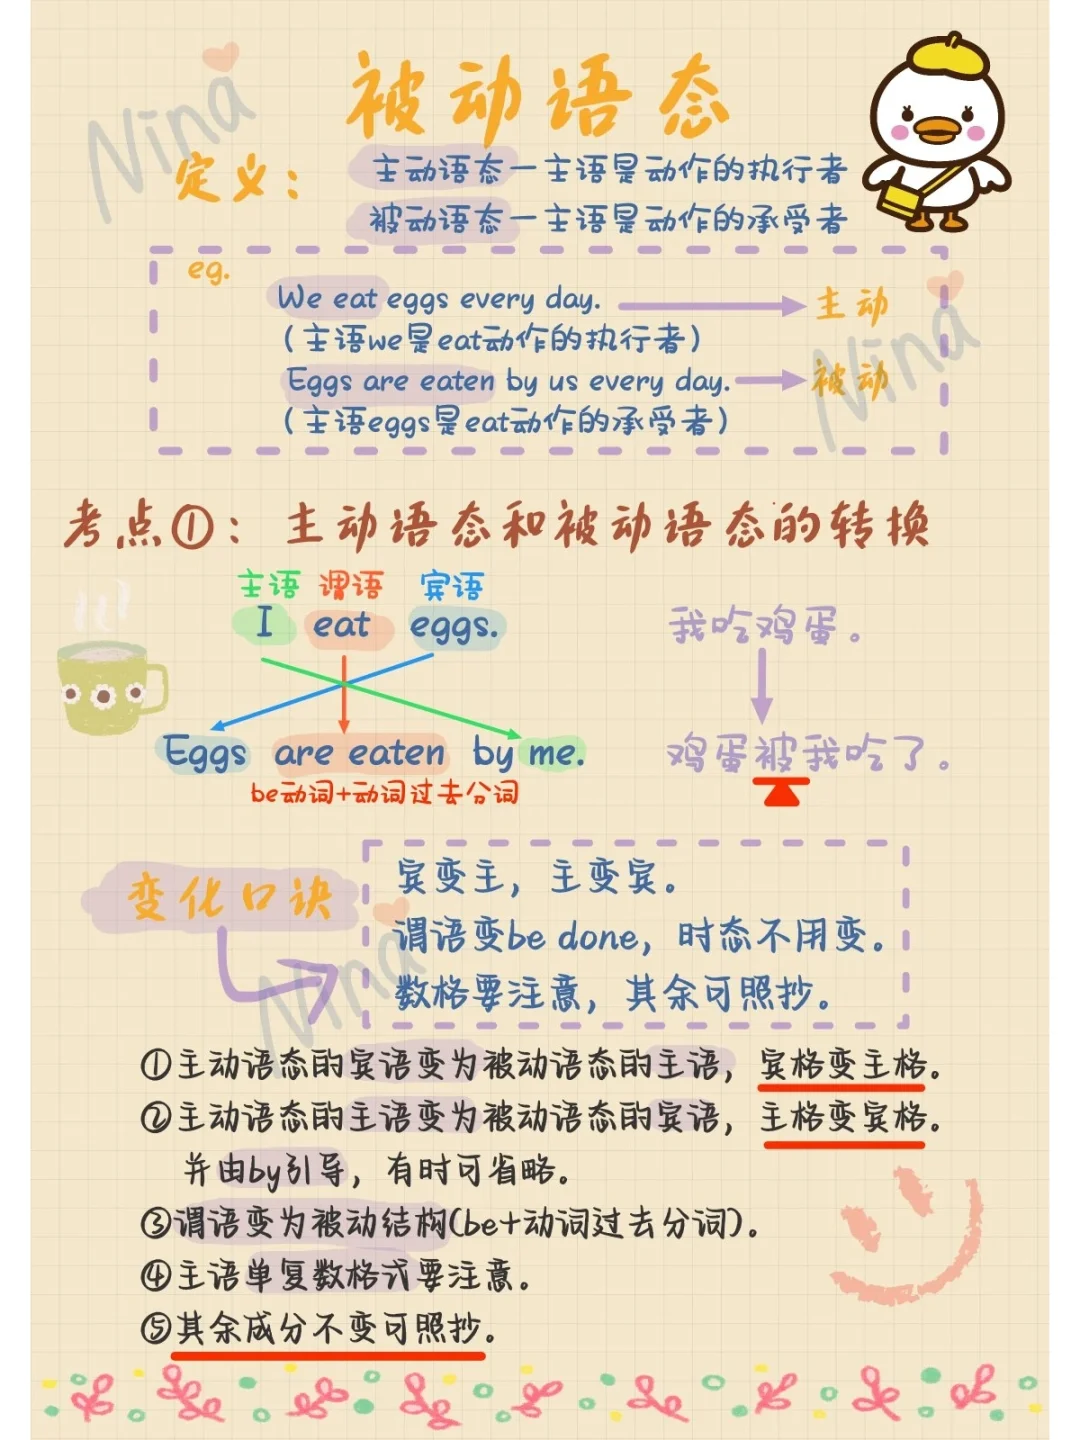 被动语态
Nina
定义：
主动语态—主语是动作的执行者
被动语态—主语是动作的承受者
eg.
We eat eggs every day. 主动
（主语we是eat动作的执行者）
Nina
Eggs are eaten by us every day. 被动
（主语eggs是eat动作的承受者）
考点①：主动语态和被动语态的转换
主语 谓语 宾语
I eat eggs.
我吃鸡蛋。
Eggs are eaten by me.
鸡蛋被我吃了。
be动词+动词过去分词
变化口诀
宾变主，主变宾。
谓语变be done，时态不用变。
Nina
数格要注意，其余可照抄。
①主动语态的宾语变为被动语态的主语，宾格变主格。
②主动语态的主语变为被动语态的宾语，主格变宾格。
并由by引导，有时可省略。
③谓语变为被动结构(be+动词过去分词)。
④主语单复数格式要注意。
⑤其余成分不变可照抄。